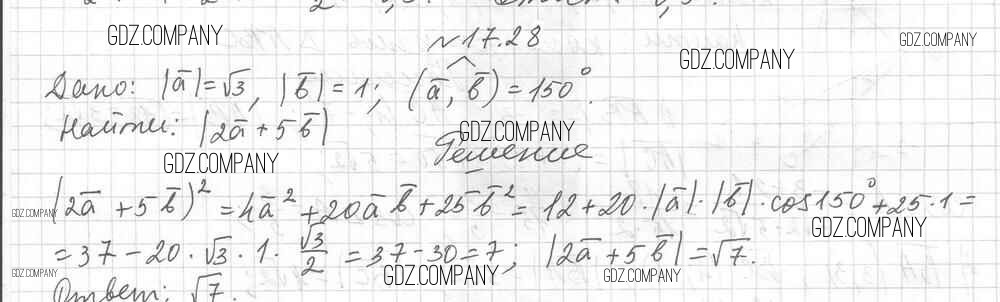 GDZ.COMPANY
№17.28
GDZ.COMPANY
GDZ.COMPANY
Дано: |a̅|=√3, |b̅|=1; (a̅, b̅)=150°.
Найти: |2a̅+5b̅|
GDZ.COMPANY
Решение
GDZ.COMPANY
(2a̅+5b̅)²=4a̅²+20a̅b̅+25b̅²=12+20·|a̅|·|b̅|·cos150°+25·1=
GDZ.COMPANY
GDZ.COMPANY
=37-20·√3·1·√3/2=37-30=7; |2a̅+5b̅|=√7.
GDZ.COMPANY
GDZ.COMPANY
GDZ.COMPANY
Ответ: √7.